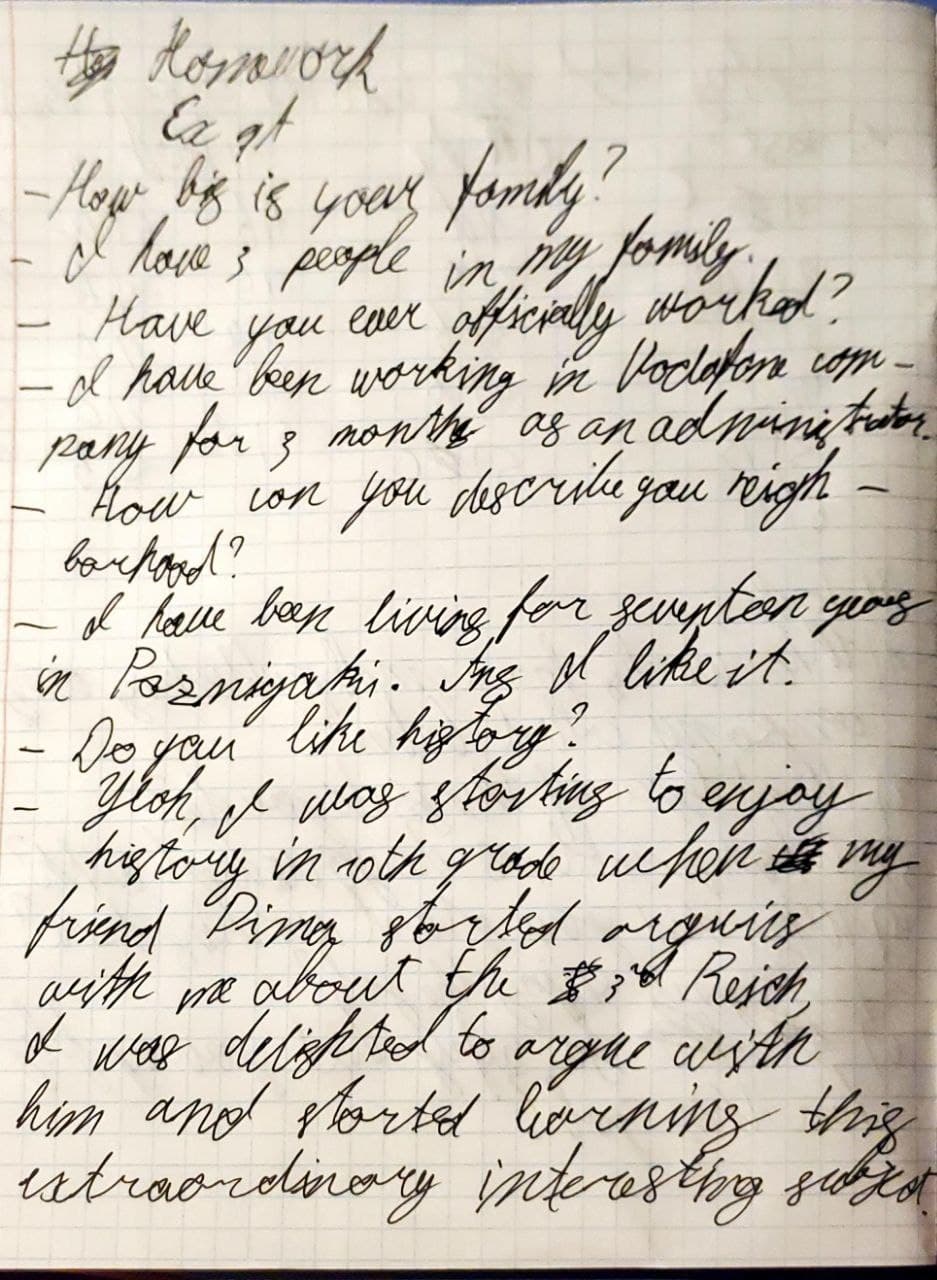 Homework
Ex
- How big is your family?
- I have 3 people in my family.
- Have you ever officially worked?
- I have been working in Vodafone com-
pany for 3 months as an administrator.
- How can you describe you neigh-
borhood?
- I have been living for seventeen years
in Pozniyaki. I like it.
- Do you like history?
- Yeah, I was starting to enjoy
history in 10th grade when my
friend Dima started arguing
with me about the 3rd Reich,
I was delighted to argue with
him and started learning this
extraordinary interesting subject.